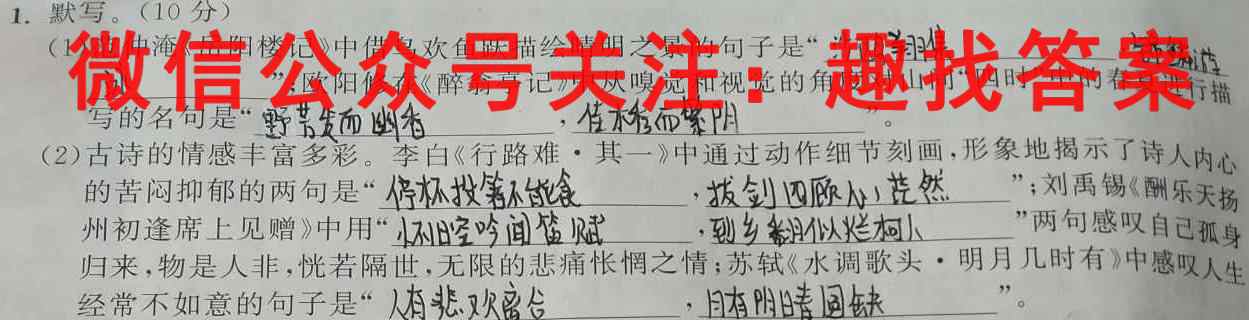 1. 默写。(10 分)
(1 淹《岳阳楼记》中借鸟欢鱼跃描绘晴明之景的句子是“ 翔集
微信公众号关注：趣找答案
”;欧阳修在《醉翁亭记》中从嗅觉和视觉的角度对山间“四时”中的春 进行描
写的名句是“野芳发而幽香,佳木秀而繁阴”。
(2)古诗的情感丰富多彩。李白《行路难·其一》中通过动作细节刻画,形象地揭示了诗人内心
的苦闷抑郁的两句是“停杯投箸不能食,拔剑四顾心茫然”;刘禹锡《酬乐天扬
州初逢席上见赠》中用“怀旧空吟闻笛赋,到乡翻似烂柯人”两句感叹自己孤身
归来,物是人非,恍若隔世,无限的悲痛怅惘之情;苏轼《水调歌头·明月几时有》中感叹人生
经常不如意的句子是“人有悲欢离合,月有阴晴圆缺”。